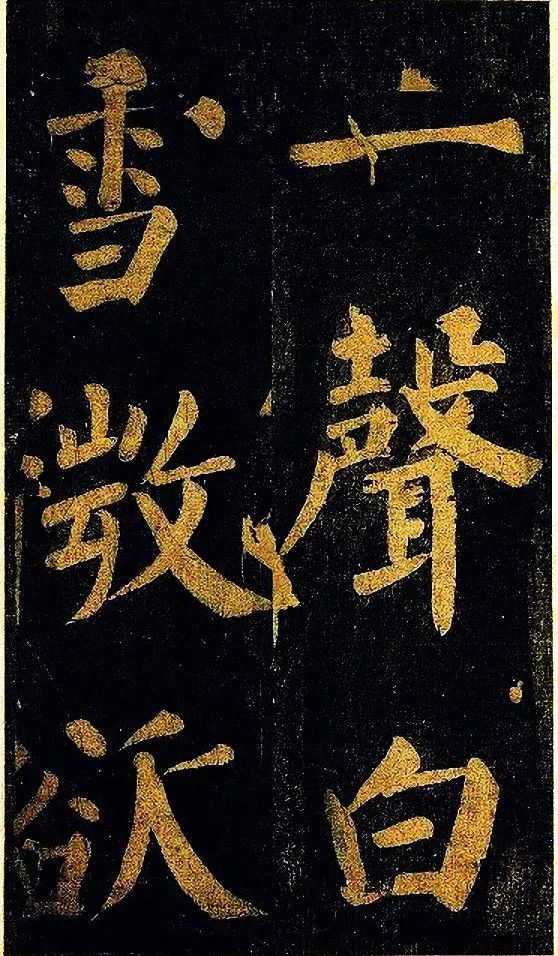 一聲白
雪澂欲